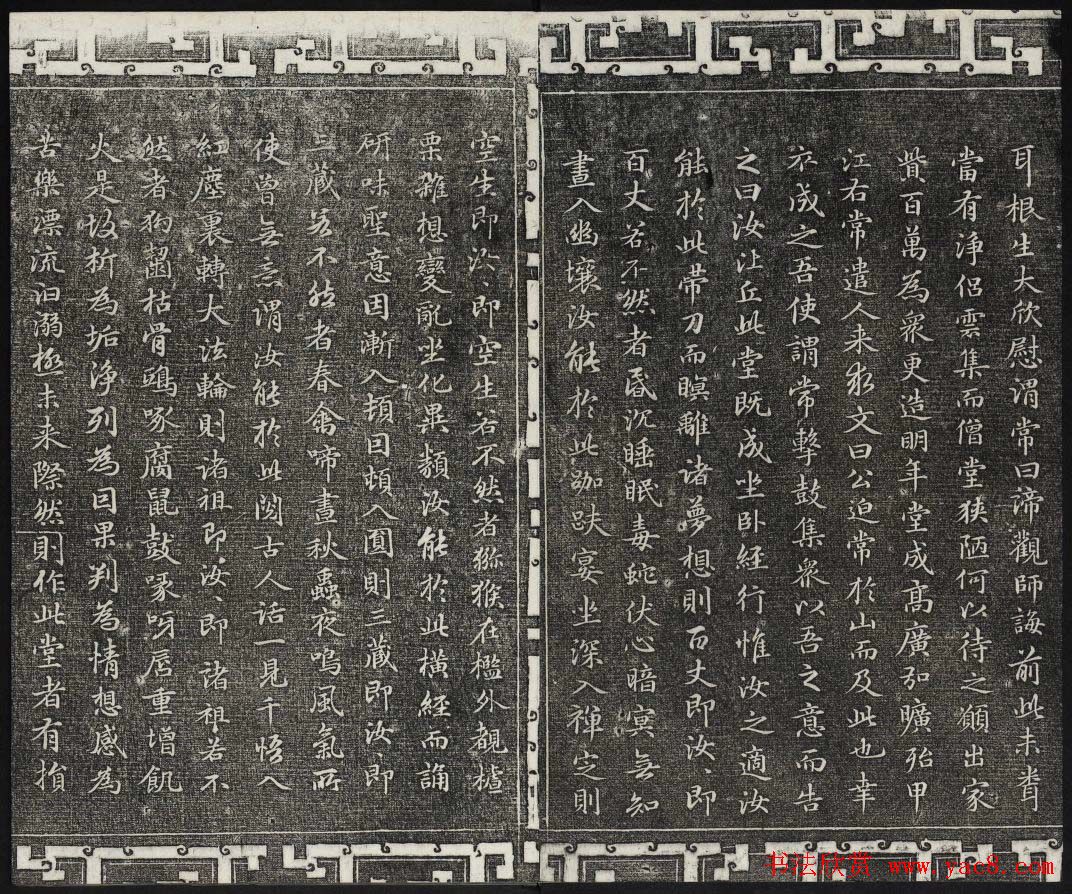 耳根生大欣慰謂常曰諦觀師誨前此未聞
當有淨侶雲集而僧堂狹陋何以待之願出家
貲百萬為衆更造明年堂成高廣宏曠殆甲
江右常遣人来求文曰公迫常於山而及此也幸
卒成之吾使謂常擊鼓集衆以吾之意而告
之曰汝比丘此堂既成坐卧經行惟汝之適汝
能於此帶刀而瞑離諸夢想則百丈即汝、即
百丈若不然者昏沉睡眠毒蛇伏心暗冥無知
晝入幽壤汝能於此跏趺宴坐深入禪定則
空生即汝、即空生若不然者獼猴在檻外覩樝
栗雜想變亂坐化異類汝能於此橫經而誦
研味聖意因漸入頓因頓入圓則三藏即汝、即
三藏若不然者春禽啼晝秋蟲夜鳴風氣所
使曾無意謂汝能於此閱古人話一見千悟入
紅塵裏轉大法輪則諸祖即汝、即諸祖若不
然者狗齧枯骨鴟啄腐鼠鼓喙呀唇重增飢
火是故析為垢淨列為因果判為情想感為
苦樂漂流汩溺極未来際然則作此堂者有損
书法欣赏 www.yac8.com